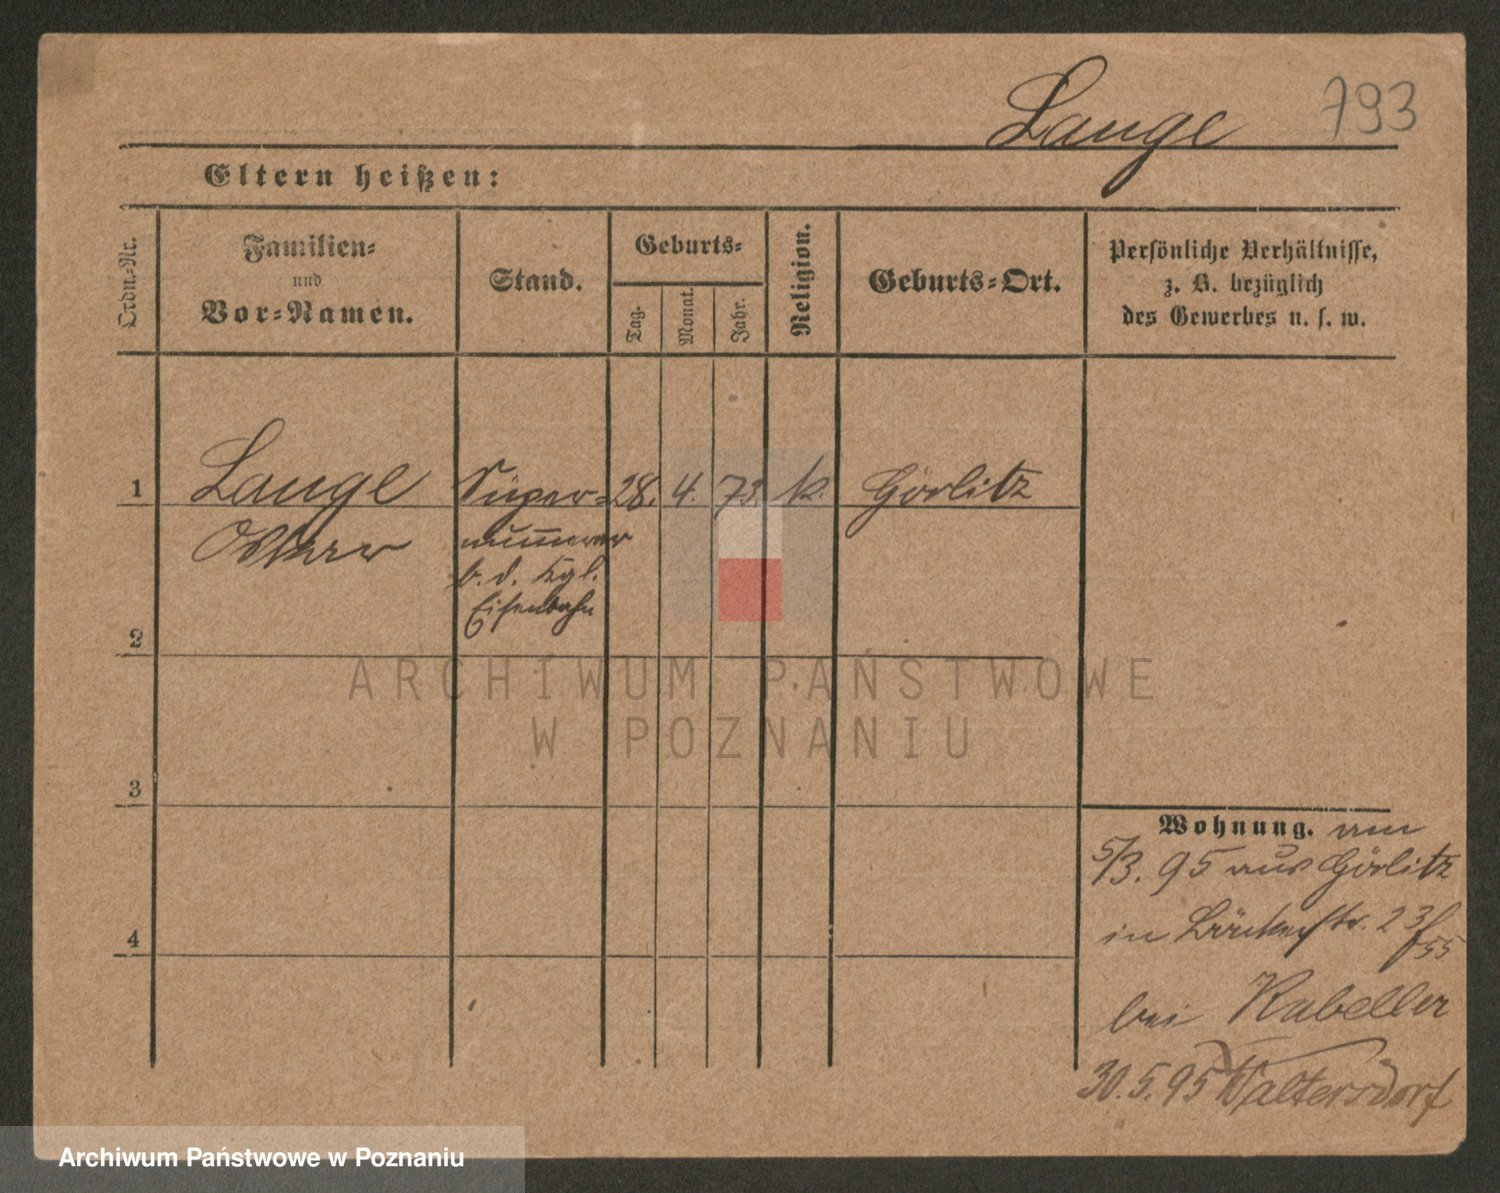 Lange 793
Eltern heißen:
Ordn.-Nr.
Familien-
und
Vor-Namen.
Stand.
Geburts-
Tag.
Monat.
Jahr.
Religion.
Geburts-Ort.
Persönliche Verhältnisse,
z. B. bezüglich
des Gewerbes u. s. w.
1 Lange Super- 28. 4. 73. k. Görlitz
Oskar numerar
b. d. Kgl.
Eisenbahn
2
3
4
Wohnung. am
5/3. 95 aus Görlitz
in Bäckerstr. 23/55
bei Kabeller
30.5.95 Waltersdorf
ARCHIWUM PAŃSTWOWE
W POZNANIU
Archiwum Państwowe w Poznaniu